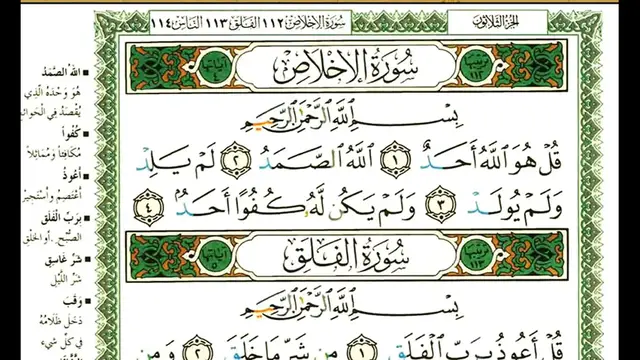 الجزء الثلاثون
سورة الإخلاص ١١٢ الفلق ١١٣ الناس ١١٤
سُورَةُ الإِخْلَاصِ
بِسْمِ اللَّهِ الرَّحْمَنِ الرَّحِيمِ
قُلْ هُوَ اللَّهُ أَحَدٌ ١ اللَّهُ الصَّمَدُ ٢ لَمْ يَلِدْ
وَلَمْ يُولَدْ ٣ وَلَمْ يَكُن لَّهُ كُفُوًا أَحَدٌ ٤
سُورَةُ الْفَلَقِ
بِسْمِ اللَّهِ الرَّحْمَنِ الرَّحِيمِ
قُلْ أَعُوذُ بِرَبِّ الْفَلَقِ ١ مِن شَرِّ مَا خَلَقَ ٢ وَمِن
اللَّهُ الصَّمَدُ
هُوَ وَحْدَهُ الَّذِي
يُقْصَدُ فِي
كُفُوًا
مُكَافِئًا وَمُمَاثِلًا
أَعُوذُ
أَعْتَصِمُ وَأَسْتَجِيرُ
بِرَبِّ الْفَلَقِ
الصُّبْحِ. أو الخَلْقِ
شَرِّ غَاسِقٍ
شَرِّ اللَّيْلِ
وَقَبَ
دَخَلَ ظَلَامُهُ
فِي كُلِّ شَيْءٍ